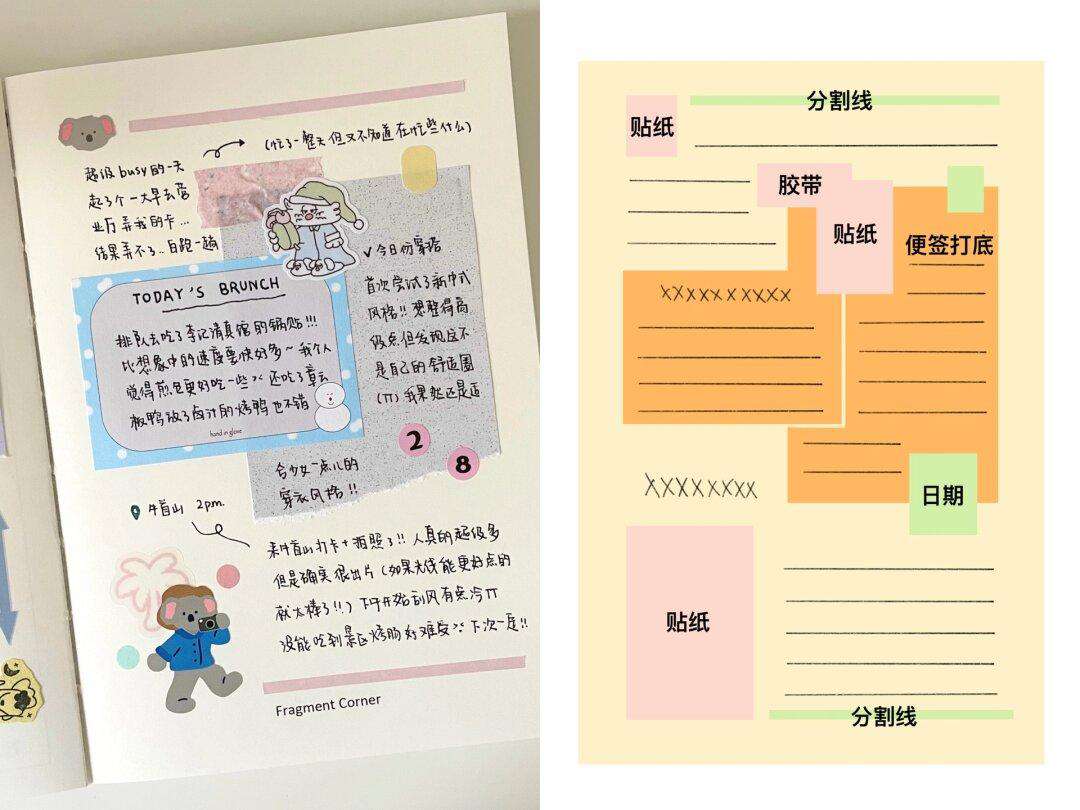 (忙了一整天但又不知道在忙些什么)
超级busy的一天
起了个一大早去营
业厅弄我的卡...
结果弄不了..白跑一趟
TODAY'S BRUNCH
排队去吃了李记清真馆的锅贴!!!
比想象中的速度要快好多~我个人
觉得煎包更好吃一些>< 还吃了章云
板鸭放了卤汁的烤鸭也不错
hand in glove
✓今日份穿搭
首次尝试了新中式
风格!!想整得高
级点但发现这不
是自己的舒适圈
(π)我果然还是适
合少女一点儿的
穿衣风格!!
2
8
牛首山 2pm.
来牛首山打卡+拍照了!!人真的超级多
但是确实很出片(如果光线能更好点的
就太棒了!!)下午开始刮风有点冷π
没能吃到景区烤肠好难受>< 下次一定!!
Fragment Corner
分割线
贴纸
胶带
贴纸
便签打底
XXXXXXXXXX
XXXXXXXXX
日期
贴纸
分割线